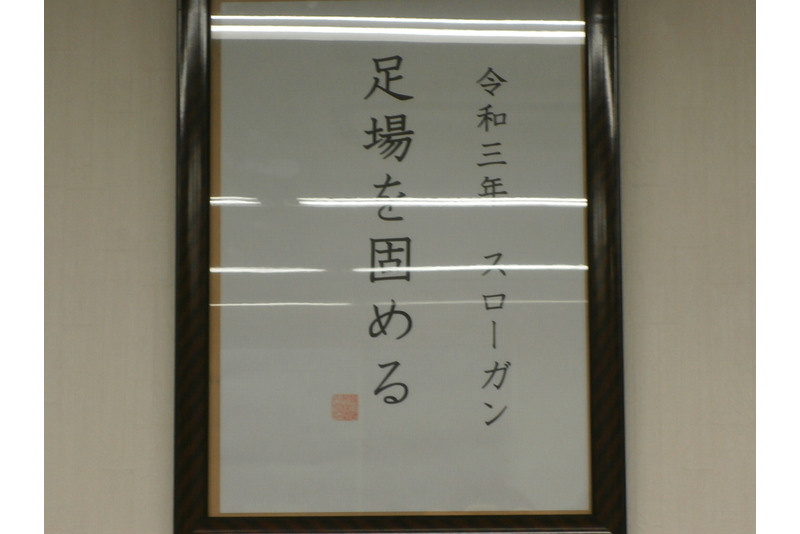 令和三年 スローガン
足場を固める